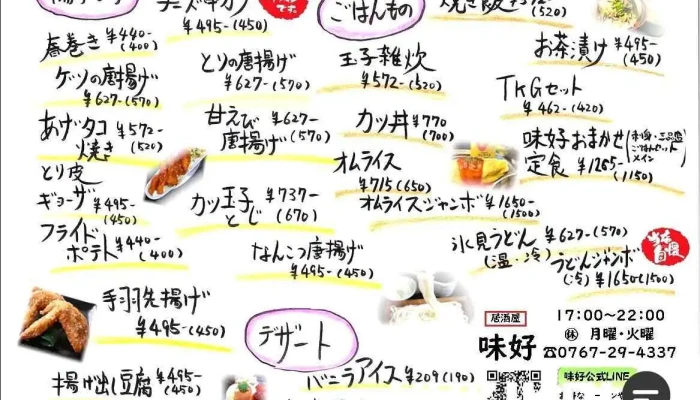 ¥495-(450)
ごはんもの
(520)
春巻き ¥440-(400)
玉子雑炊 ¥572-(520)
お茶漬け ¥495-(450)
ゲソの唐揚げ ¥627-(570)
とりの唐揚げ ¥627-(570)
TKGセット ¥462-(420)
あげタコ焼き ¥572-(520)
甘えび唐揚げ ¥627-(570)
カツ丼 ¥770(700)
味好おまかせ定食 ¥1265-(1150)
とり皮ギョーザ ¥495-(450)
カツ玉子とじ ¥737-(670)
オムライス ¥715(650)
オムライスジャンボ ¥1650-(1500)
フライドポテト ¥440-(400)
なんこつ唐揚げ ¥495-(450)
氷見うどん(温・冷) ¥627-(570)
うどんジャンボ(冷) ¥1650(1500)
当店自慢
手羽先揚げ ¥495-(450)
デザート
居酒屋
味好
17:00〜22:00
㊡ 月曜・火曜
☎0767-29-4337
揚げ出し豆腐 ¥495-(450)
バニラアイス ¥209(190)
味好公式LINE